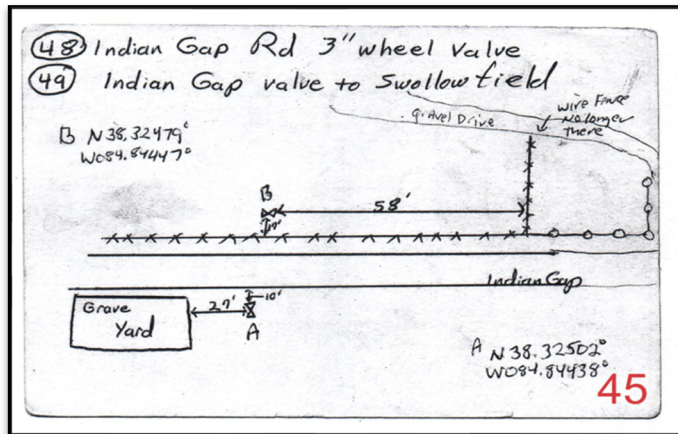 48 Indian Gap Rd 3" wheel valve
49 Indian Gap valve to Swollowfield
gravel Drive
wire Fence
No longer
there
B N 38.32479°
W084.84447°
B
58'
Indian Gap
Grave
Yard
27'
10'
A
A N 38.32502°
W084.84438°
45